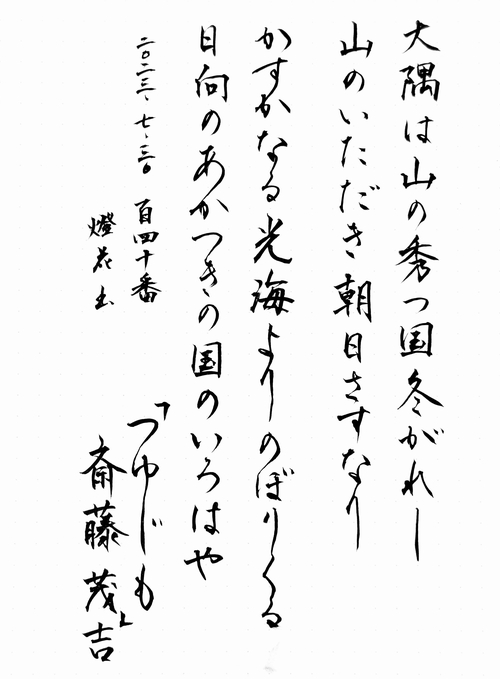 大隅は山の秀つ国冬がれし
山のいただき朝日さすなり
かすかなる光海よりのぼりくる
日向のあかつきの国のいろはや
二〇二三、七、三〇 百四十番
燈花
「つゆじも」
斎藤茂吉